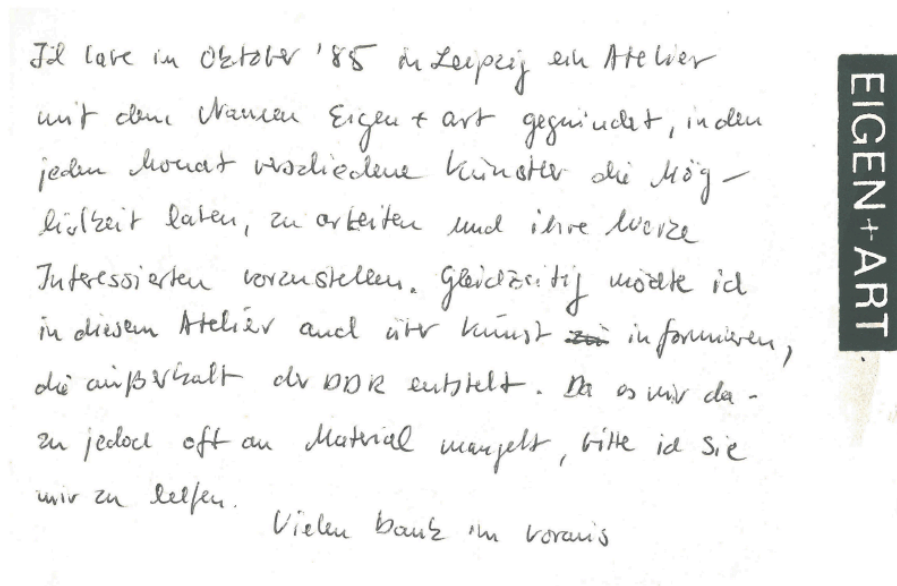 Ich habe in Oktober '85 in Leipzig ein Atelier
mit dem Namen Eigen + art gegründet, in dem
jeden Monat verschiedene Künstler die Mög-
lichkeit haben, zu arbeiten und ihre Werke
Interessierten vorzustellen. Gleichzeitig möchte ich
in diesem Atelier auch über Kunst informieren,
die außerhalb der DDR entsteht. Da es mir da-
zu jedoch oft an Material mangelt, bitte ich Sie
mir zu helfen.
Vielen Dank im voraus
EIGEN+ART